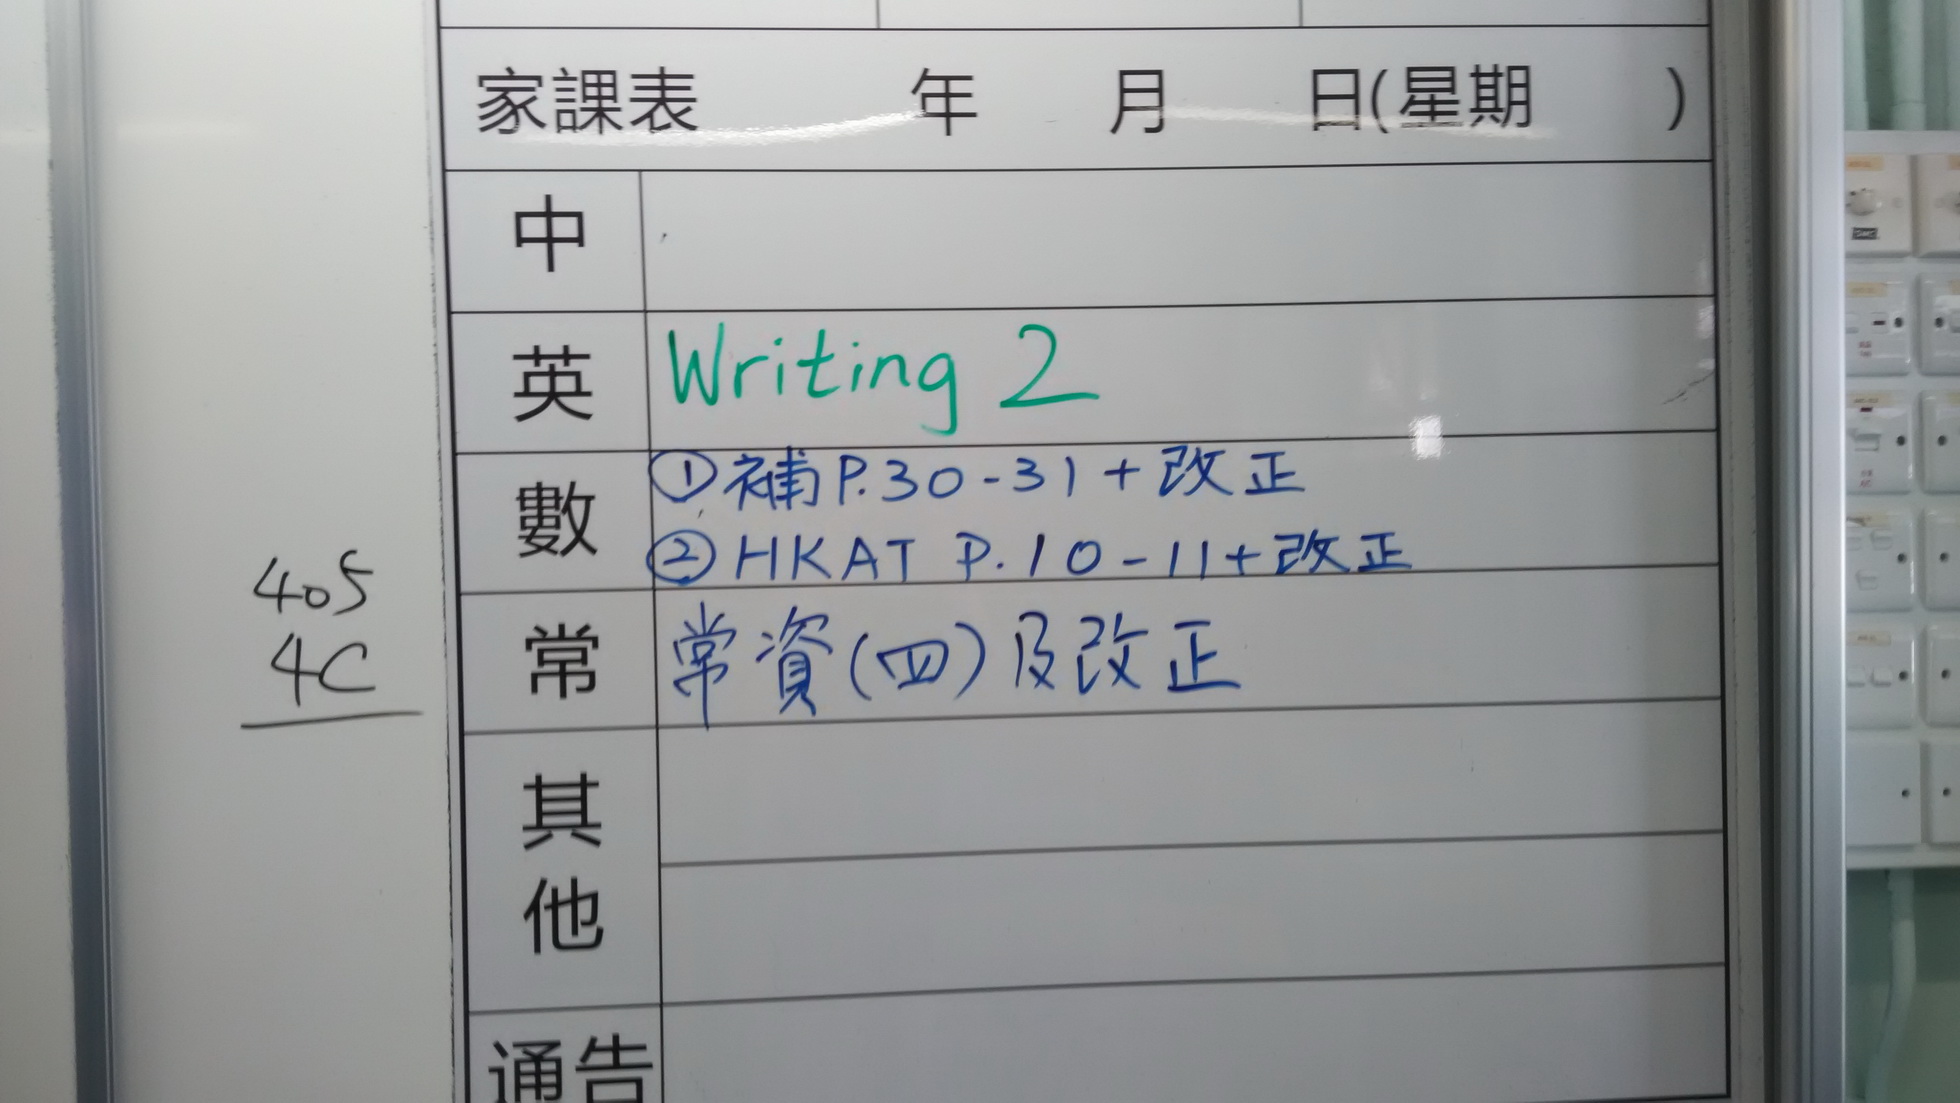 家課表 年 月 日(星期 )
中
英 Writing 2
數 ①補P.30-31+改正
②HKAT P.10-11+改正
常 常資(四)及改正
其他
通告
405
4C